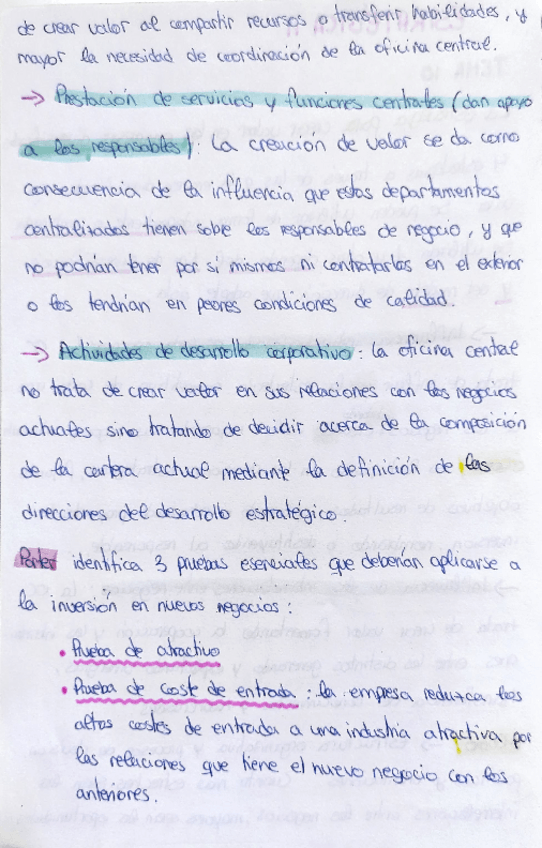 de crear valor al compartir recursos o transferir habilidades, y
mayor la necesidad de coordinación de la oficina central.
→ Prestación de servicios y funciones centrales (dan apoyo
a los responsables): La creación de valor se da como
consecuencia de la influencia que estos departamentos
centralizados tienen sobre los responsables de negocio, y que
no podrían tener por si mismos ni contratarlos en el exterior
o los tendrían en peores condiciones de calidad.
→ Actividades de desarrollo corporativo: la oficina central
no trata de crear valor en sus relaciones con los negocios
actuales sino tratando de decidir acerca de la composición
de la cartera actual mediante la definición de las
direcciones del desarrollo estratégico.
Porter identifica 3 pruebas esenciales que deberían aplicarse a
la inversión en nuevos negocios:
• Prueba de atractivo
• Prueba de coste de entrada: la empresa reduzca los
altos costes de entrada a una industria atractiva por
las relaciones que tiene el nuevo negocio con los
anteriores.